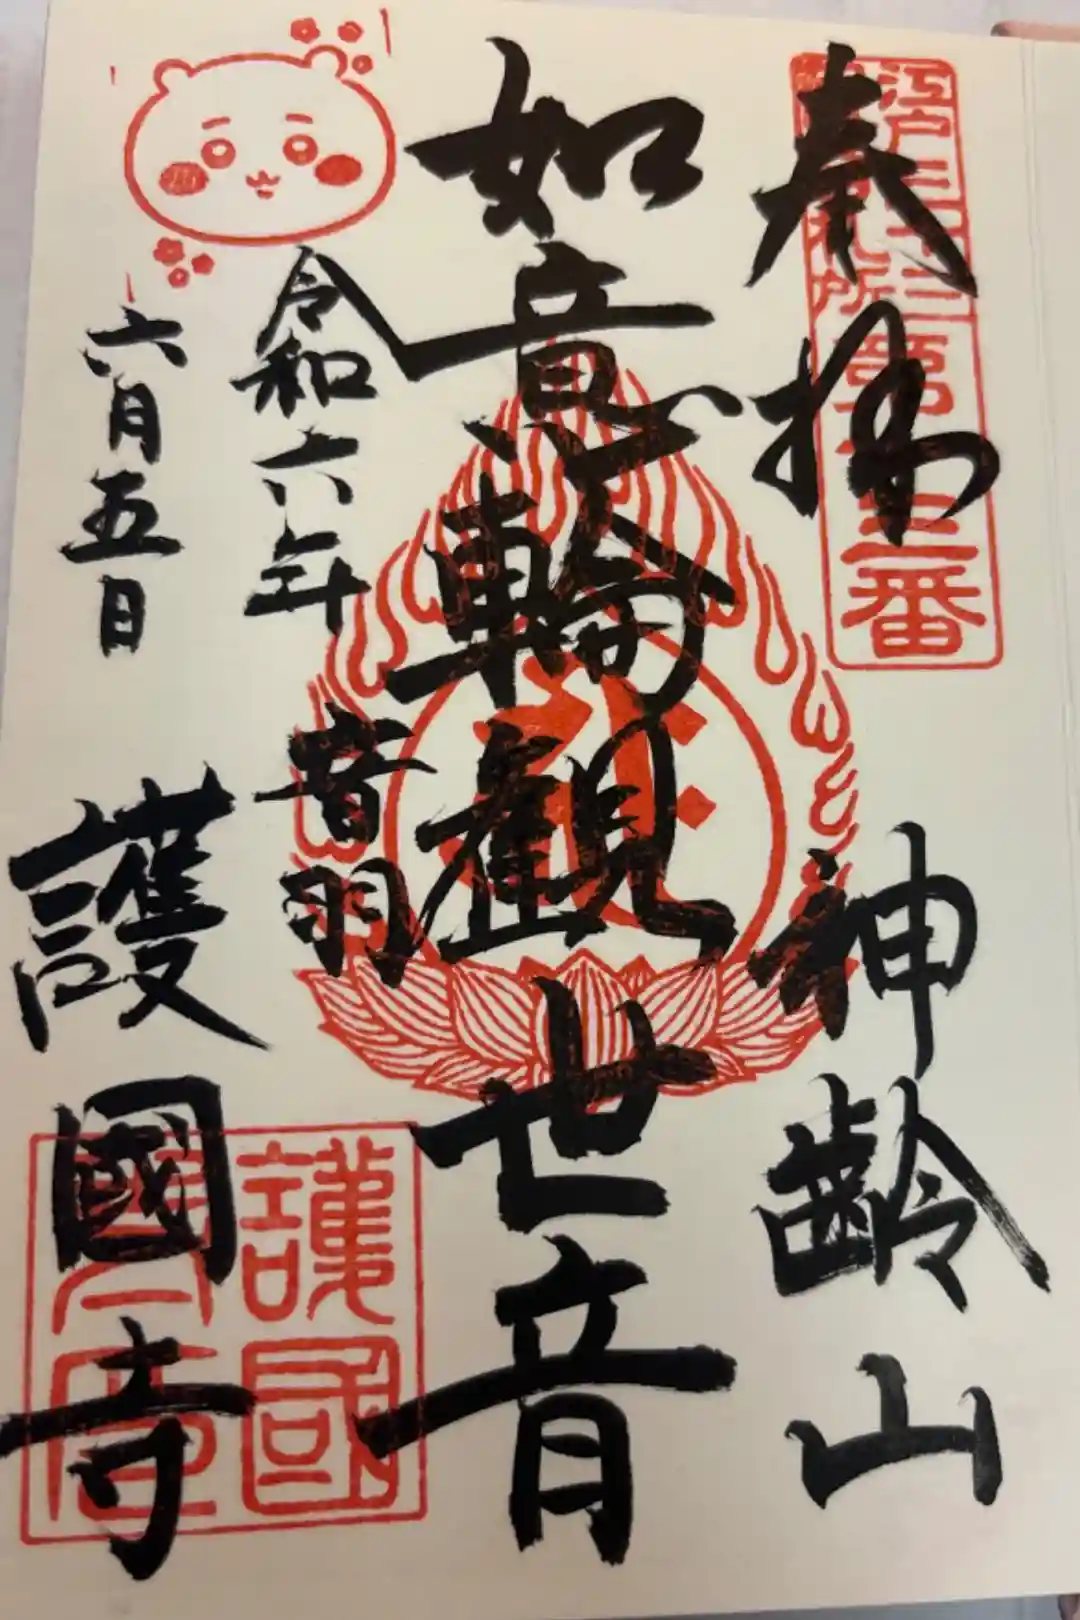 奉拝
神齢山
江戸三十三
札所第十三番
如意輪観世音
令和六年
六月五日
音羽
護國寺
護國